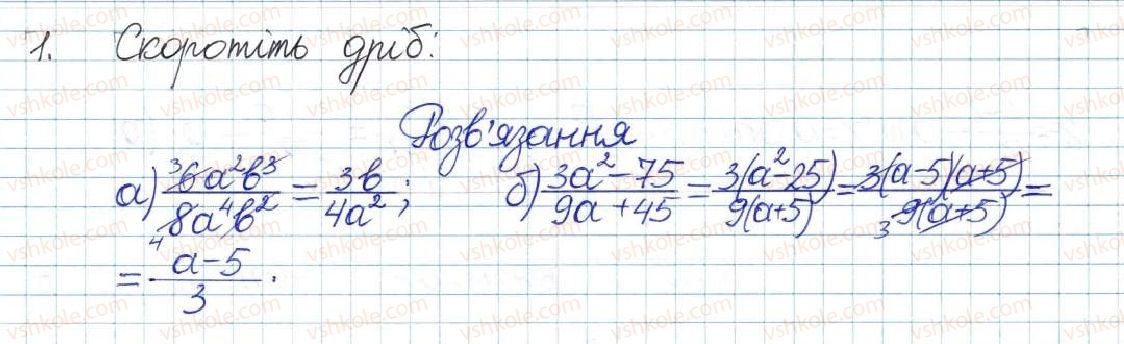 1. Скоротіть дріб:
Розв'язання
а) 6a²b³/8a⁴b² = 3b/4a²; б) 3a²-75/9a+45 = 3(a²-25)/9(a+5) = 3(a-5)(a+5)/9(a+5) =
= a-5/3.